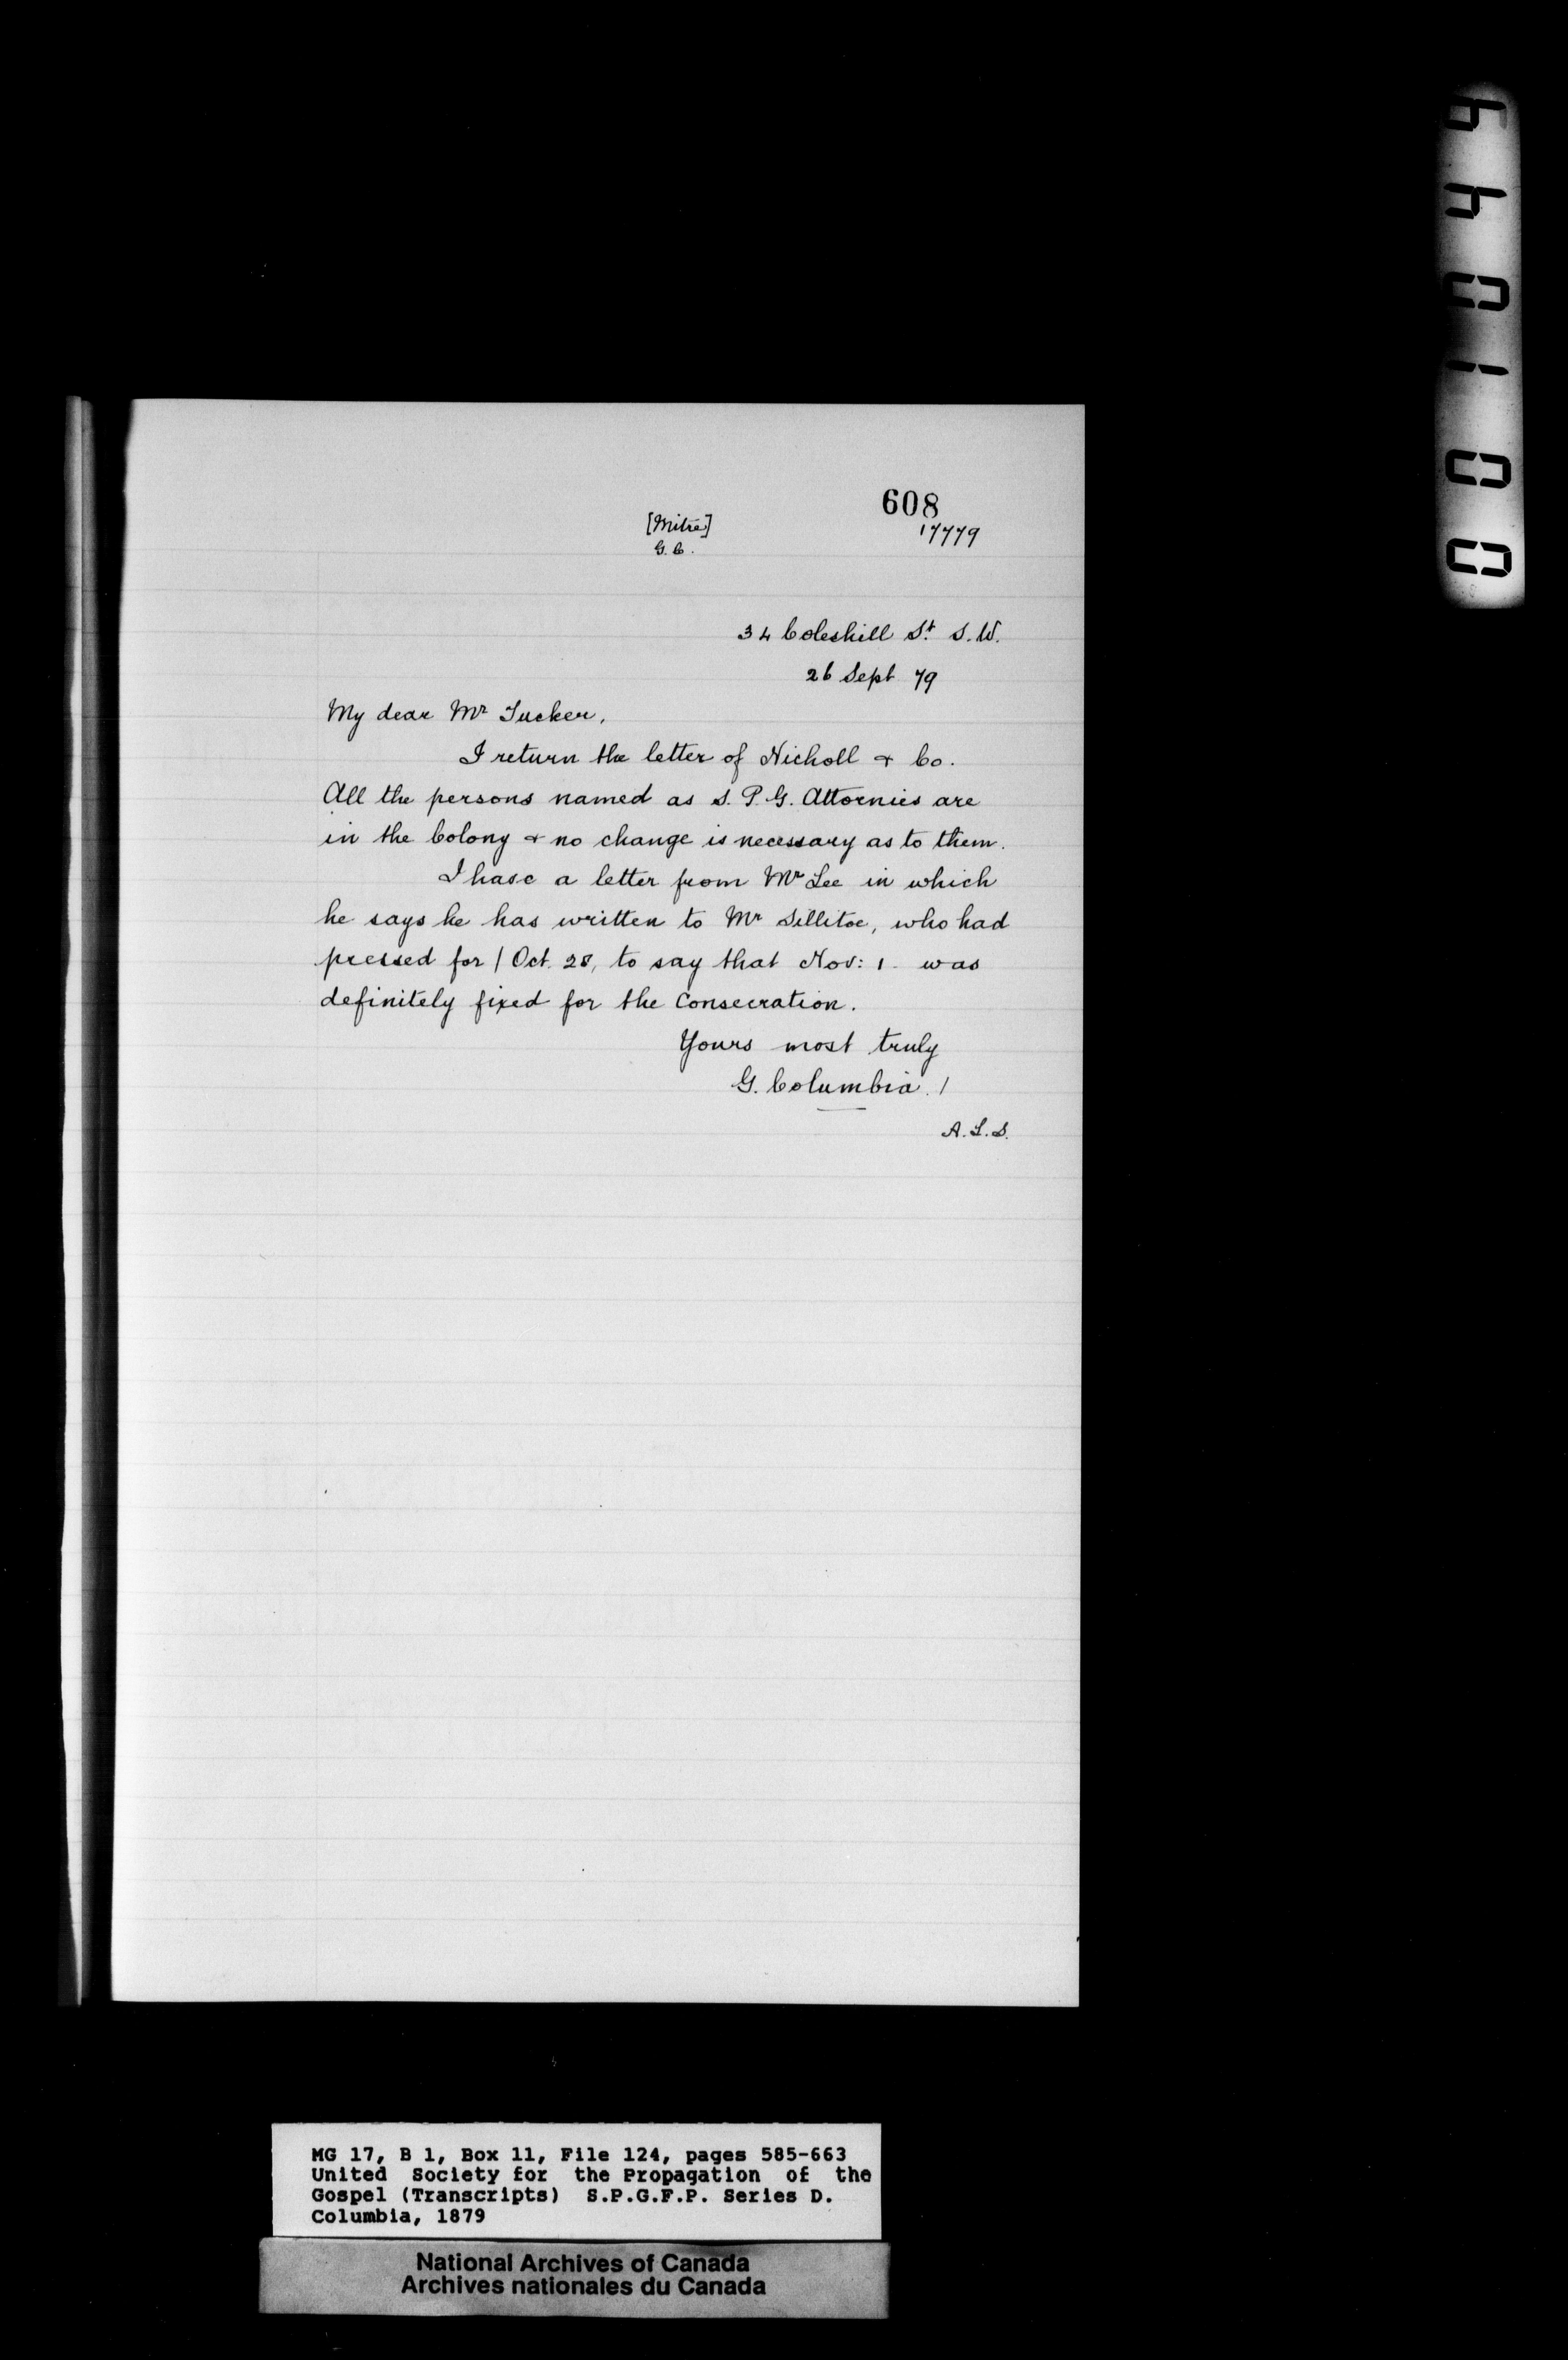 608
[Mitre]
17779
G. C.
34 Coleshill St. S.W.
26 Sept 79
My dear Mr Tucker,
I return the letter of Nicholl & Co.
All the persons named as S. P. G. Attornies are
in the Colony & no change is necessary as to them.
I have a letter from Mr Lee in which
he says he has written to Mr Sillitoe, who had
pressed for / Oct. 28, to say that Nov: 1. was
definitely fixed for the Consecration.
Yours most truly
G. Columbia. /
A. L. S.
MG 17, B 1, Box 11, File 124, pages 585-663
United Society for the Propagation of the
Gospel (Transcripts) S.P.G.F.P. Series D.
Columbia, 1879
National Archives of Canada
Archives nationales du Canada
001044